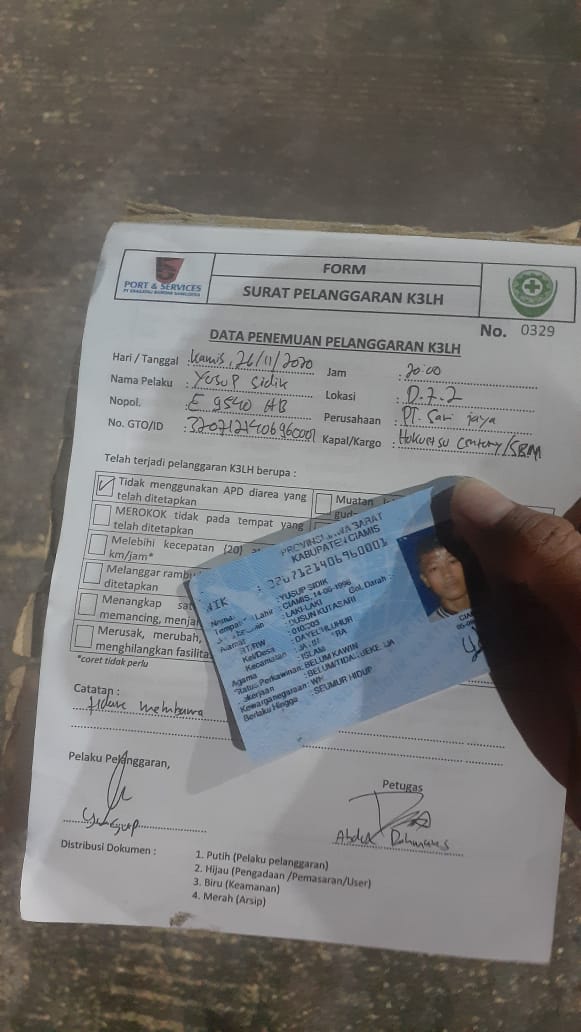 PORT & SERVICES
FORM
SURAT PELANGGARAN K3LH
No. 0329
DATA PENEMUAN PELANGGARAN K3LH
Hari / Tanggal : Kamis, 26/11/2020 Jam : 20:00
Nama Pelaku : Yusup Sidik Lokasi : D.7.2
Nopol. : E 9540 HB Perusahaan : PT. Sari jaya
No. GTO/ID : 3207121406960001 Kapal/Kargo : /SBM
Telah terjadi pelanggaran K3LH berupa :
Tidak menggunakan APD diarea yang
telah ditetapkan
Muatan
MEROKOK tidak pada tempat yang
telah ditetapkan
Melebihi kecepatan (20)
km/jam*
Melanggar
ditetapkan
Menangkap
memancing,
Merusak, merubah,
menghilangkan
*coret tidak perlu
PROVINSI JAWA BARAT
KABUPATEN CIAMIS
NIK : 3207121406960001
Nama : YUSUP SIDIK
CIAMIS, 14-06-1996
LAKI-LAKI Gol.Darah :
Alamat : DUSUN KUTASARI
RT/RW
Kel/Desa : DAYEUHLUHUR
Kecamatan
Agama : ISLAM
Status Perkawinan: BELUM KAWIN
Kewarganegaraan:
Berlaku Hingga : SEUMUR HIDUP
Catatan :
tidak membawa
Pelaku Pelanggaran,
Petugas
Distribusi Dokumen :
1. Putih (Pelaku pelanggaran)
2. Hijau (Pengadaan /Pemasaran/User)
3. Biru (Keamanan)
4. Merah (Arsip)